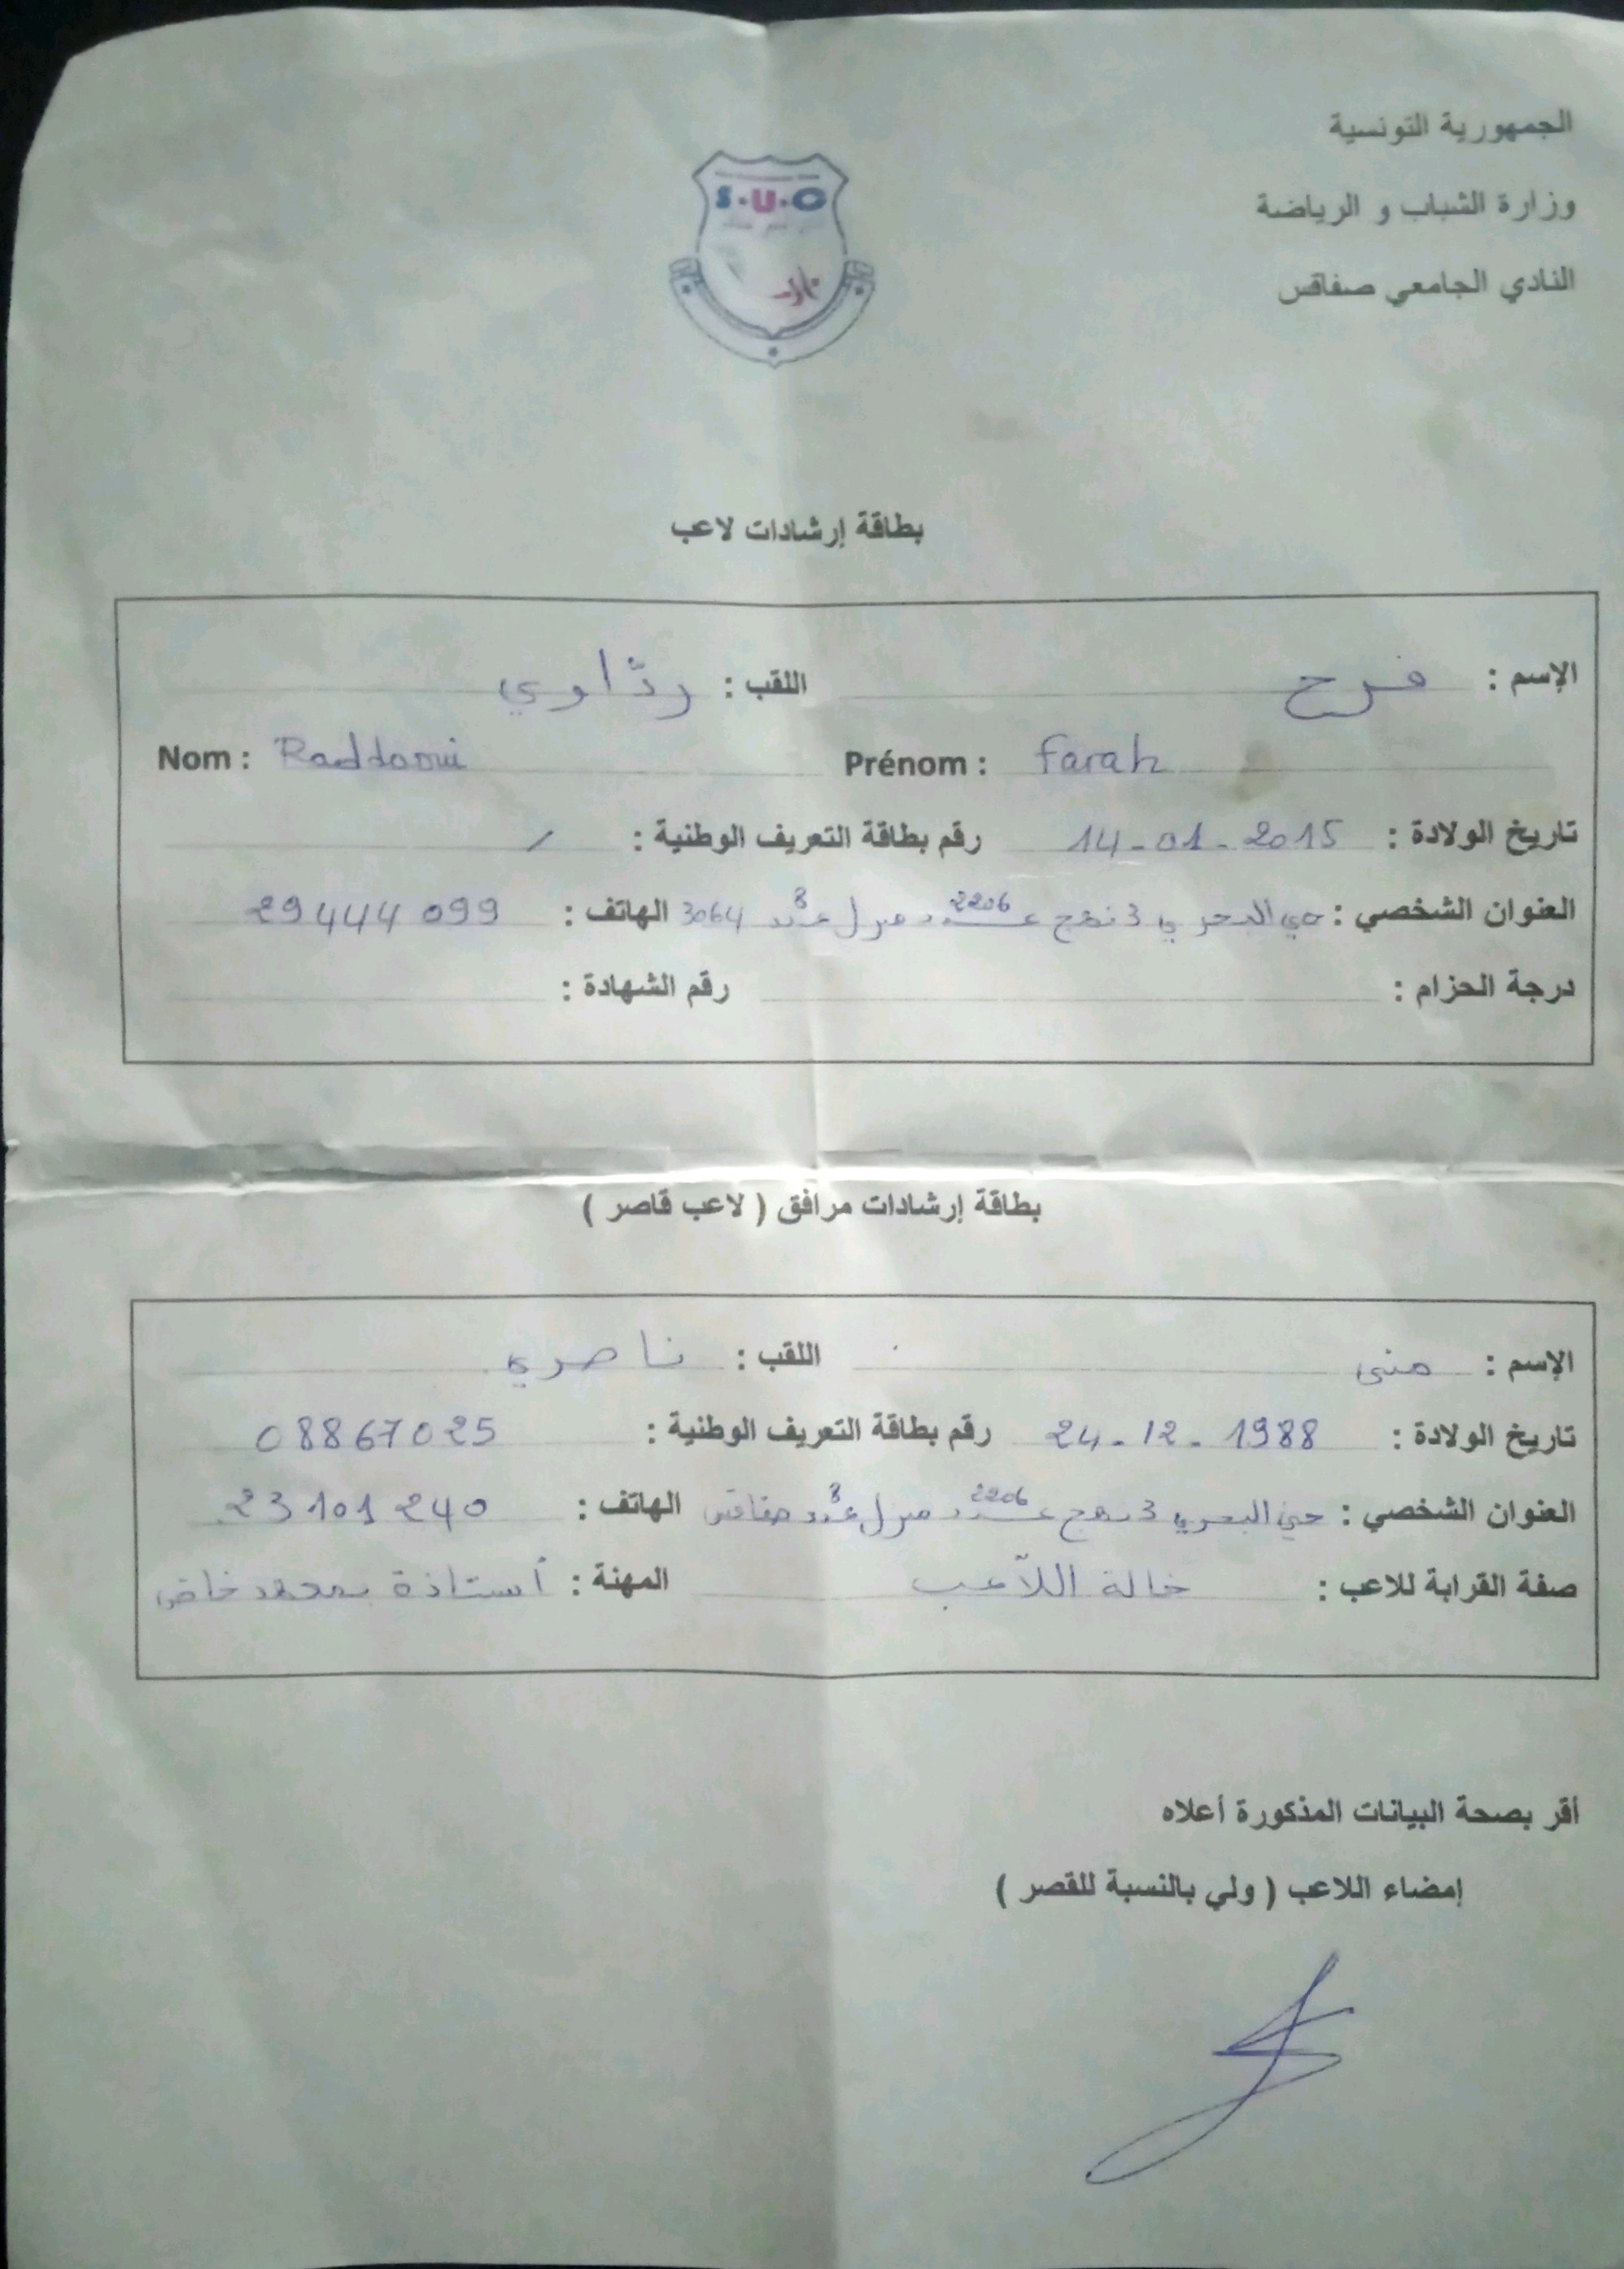 الجمهورية التونسية
وزارة الشباب و الرياضة
النادي الجامعي صفاقس
S.U.O
بطاقة إرشادات لاعب
الإسم : فرح اللقب : ردّاوي
Nom : Raddaoui Prénom : Farah
تاريخ الولادة : 14-01-2015 رقم بطاقة التعريف الوطنية : /
العنوان الشخصي : حي البحري 3 نهج عدد 2206 منزل عدد 8 3064 الهاتف : 29444 099
درجة الحزام : رقم الشهادة :
بطاقة إرشادات مرافق ( لاعب قاصر )
الإسم : منى اللقب : ناصري
تاريخ الولادة : 24-12-1988 رقم بطاقة التعريف الوطنية : 08867025
العنوان الشخصي : حي البحري 3 نهج عدد 2206 منزل عدد 8 صفاقس الهاتف : 23101240
صفة القرابة للاعب : خالة اللاّعب المهنة : أستاذة بمعهد خاص
أقر بصحة البيانات المذكورة أعلاه
إمضاء اللاعب ( ولي بالنسبة للقصر )